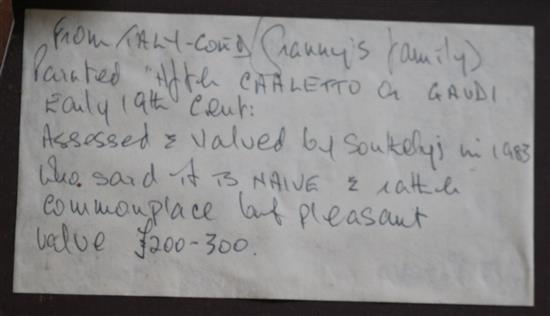 From ITALY - (Granny's family)
Painted "After CANALETTO or GAUDI
Early 19th Cent:
Assessed & valued by Sotheby's in 1983
who said it is NAIVE & rather
commonplace but pleasant
value £200-300.